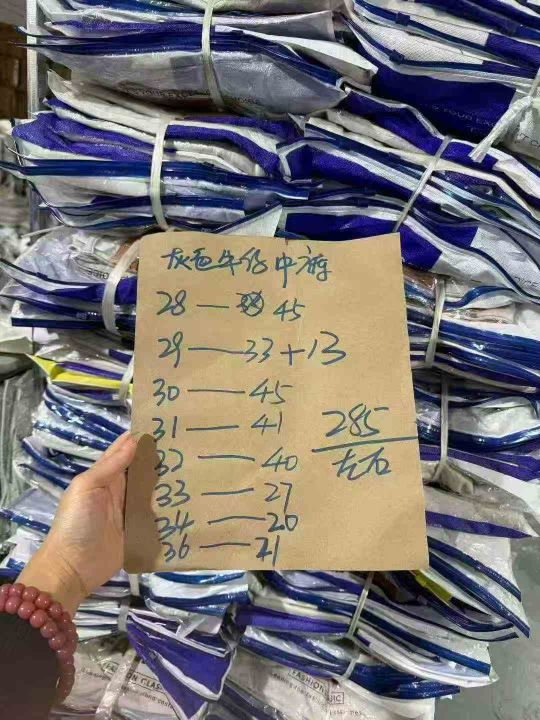 灰色牛仔中裤
28 — 45
29 — 33 + 13
30 — 45
31 — 41
285
左右
32 — 40
33 — 27
34 — 20
36 — 21
FASHION